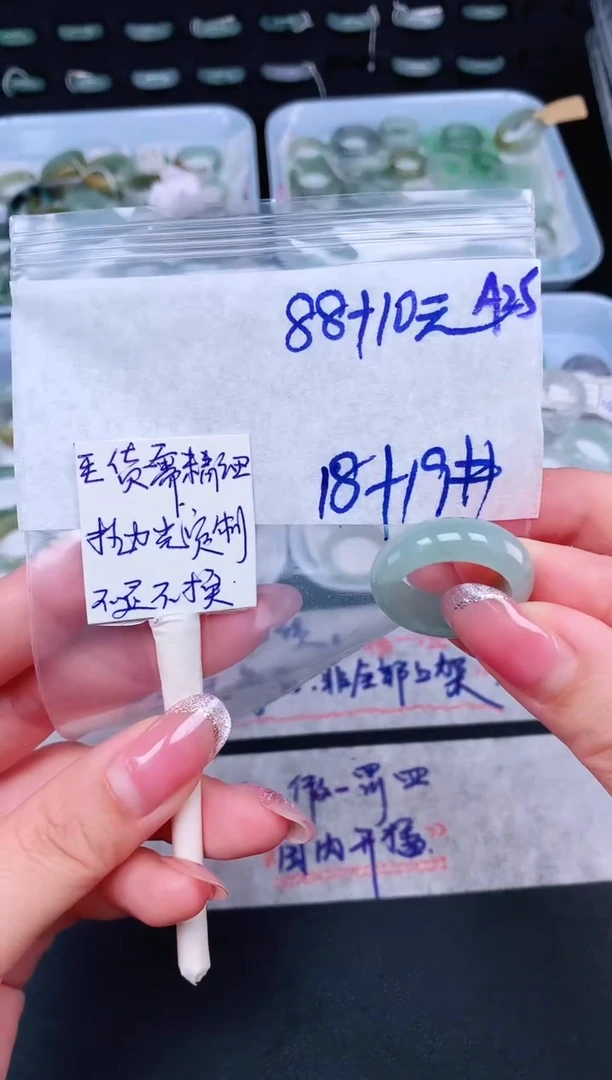 88+10元 A25
18+19#
至货需精细
拍力先定制
不退不换.
..非全部上架
假一罚四
国内开播